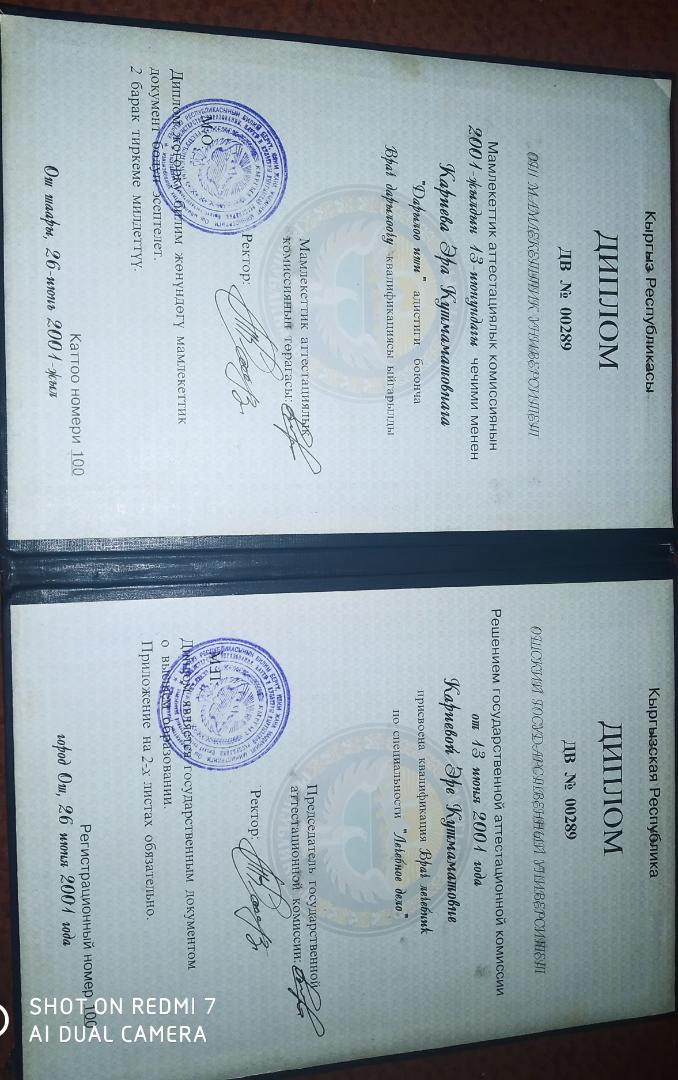 Кыргыз Республикасы
ДИПЛОМ
ДВ № 00289
ОШ МАМЛЕКЕТТИК УНИВЕРСИТЕТИ
Мамлекеттик аттестациялык комиссиянын
2001-жылдын 13-июнундагы чечими менен
Кариева Эра Кутмаматовнага
"Дарылоо иши" адистиги боюнча
Врач дарылоочу квалификациясы ыйгарылды
Мамлекеттик аттестациялык
комиссиянын төрагасы:
Ректор:
М.О.
Диплом жогорку билим жөнүндөгү мамлекеттик
документ болуп эсептелет.
2 барак тиркеме милдеттүү.
Каттоо номери 100
Ош шаары, 26-июнь 2001-жыл
Кыргызская Республика
ДИПЛОМ
ДВ № 00289
ОШСКИЙ ГОСУДАРСТВЕННЫЙ УНИВЕРСИТЕТ
Решением государственной аттестационной комиссии
от 13 июня 2001 года
Кариевой Эре Кутмаматовне
присвоена квалификация Врач лечебник
по специальности "Лечебное дело"
Председатель государственной
аттестационной комиссии:
Ректор:
М.П.
Диплом является государственным документом
о высшем образовании.
Приложение на 2-х листах обязательно.
Регистрационный номер 100
город Ош, 26 июня 2001 года
SHOT ON REDMI 7
AI DUAL CAMERA